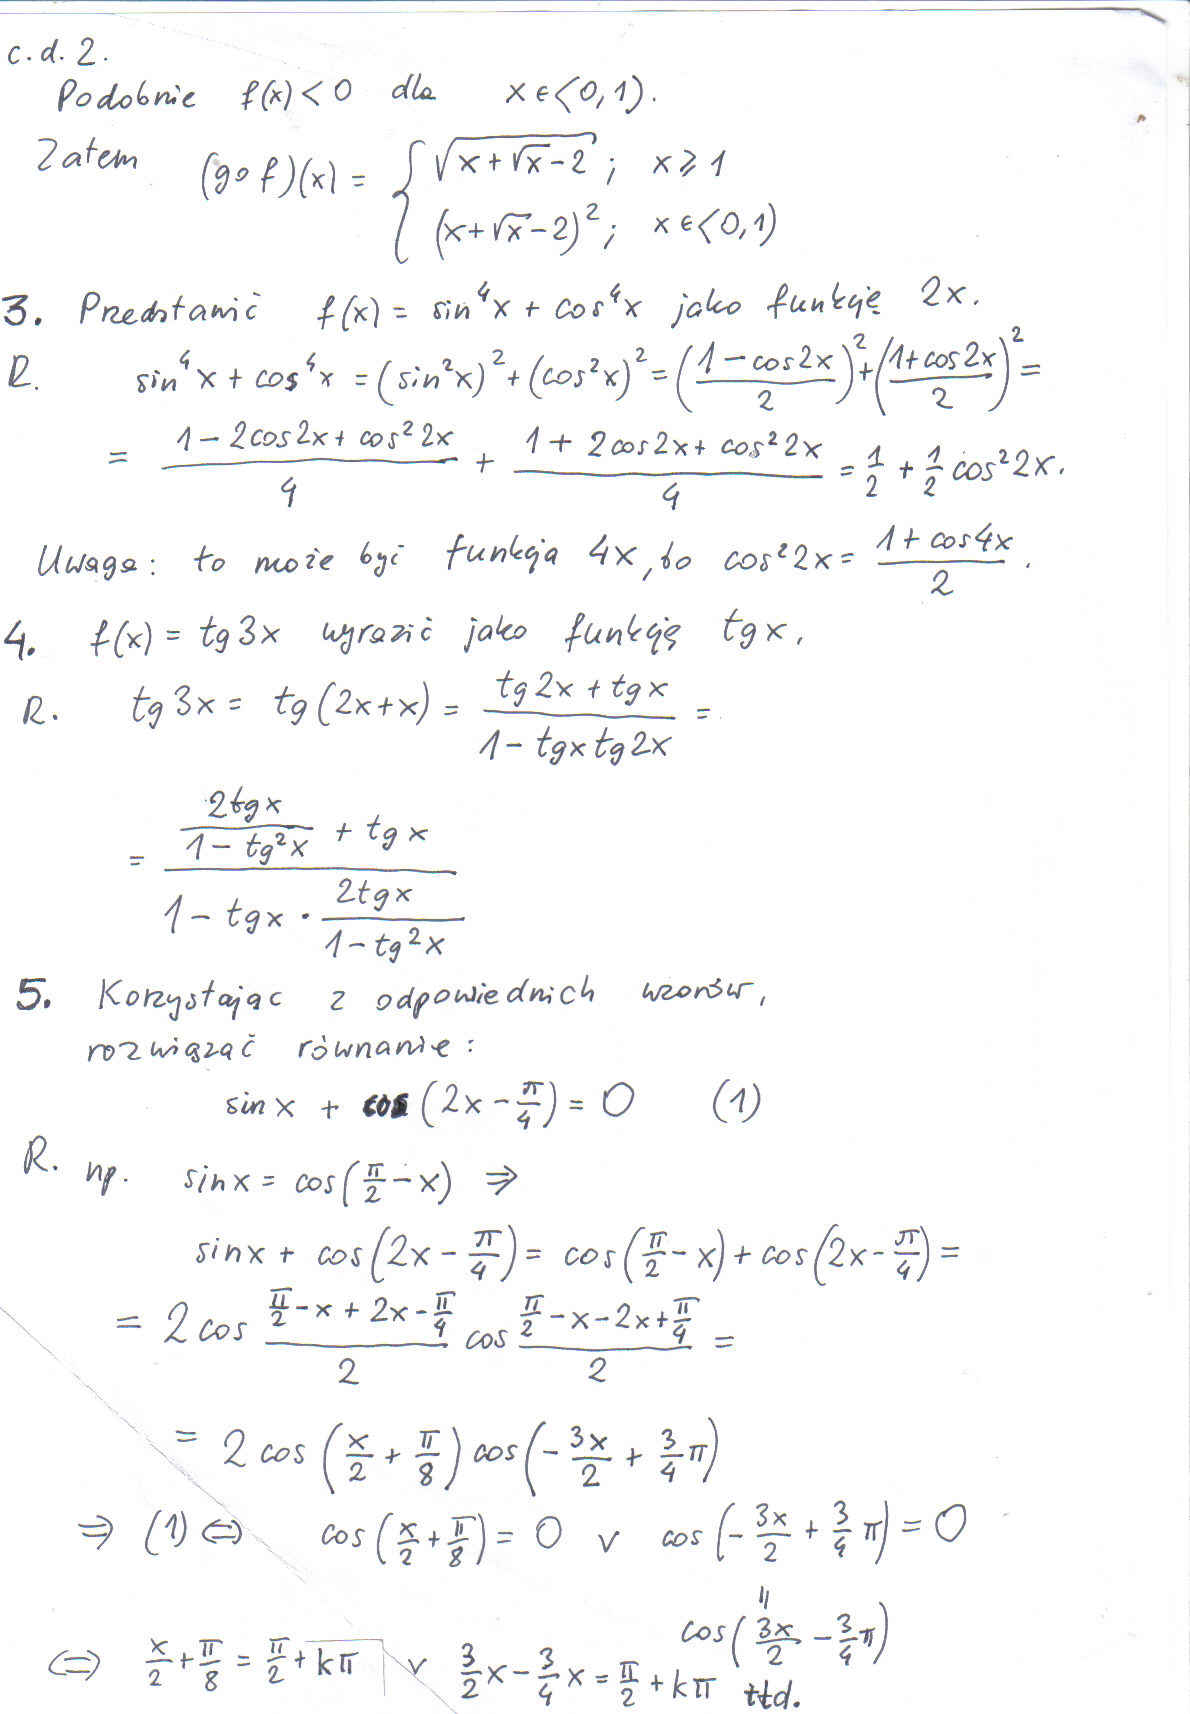 c.d. 2.
Podobnie f(x) < 0 dla x ∈ <0, 1).
Zatem (g∘f)(x) = { √(x + √x - 2) ; x ⩾ 1
(x + √x - 2)² ; x ∈ <0, 1)
3. Przedstawić f(x) = sin⁴x + cos⁴x jako funkcję 2x.
R. sin⁴x + cos⁴x = (sin²x)² + (cos²x)² = ((1 - cos2x)/2)² + ((1 + cos2x)/2)² =
= (1 - 2cos2x + cos²2x)/4 + (1 + 2cos2x + cos²2x)/4 = 1/2 + 1/2 cos²2x.
Uwaga: to może być funkcja 4x, bo cos²2x = (1 + cos4x)/2 .
4. f(x) = tg3x wyrazić jako funkcję tgx.
R. tg3x = tg(2x+x) = (tg2x + tgx)/(1 - tgx tg2x) =
= (2tgx/(1 - tg²x) + tgx)/(1 - tgx · 2tgx/(1 - tg²x))
5. Korzystając z odpowiednich wzorów,
rozwiązać równanie:
sinx + cos(2x - π/4) = 0 (1)
R. np. sinx = cos(π/2 - x) ⇒
sinx + cos(2x - π/4) = cos(π/2 - x) + cos(2x - π/4) =
= 2cos (π/2 - x + 2x - π/4)/2 cos (π/2 - x - 2x + π/4)/2 =
= 2cos(x/2 + π/8) cos(-3x/2 + 3/4 π)
⇒ (1) ⇔ cos(x/2 + π/8) = 0 ∨ cos(-3x/2 + 3/4 π) = 0
=
cos(3x/2 - 3/4 π)
⇔ x/2 + π/8 = π/2 + kπ ∨ 3/2 x - 3/4 x = π/2 + kπ itd.